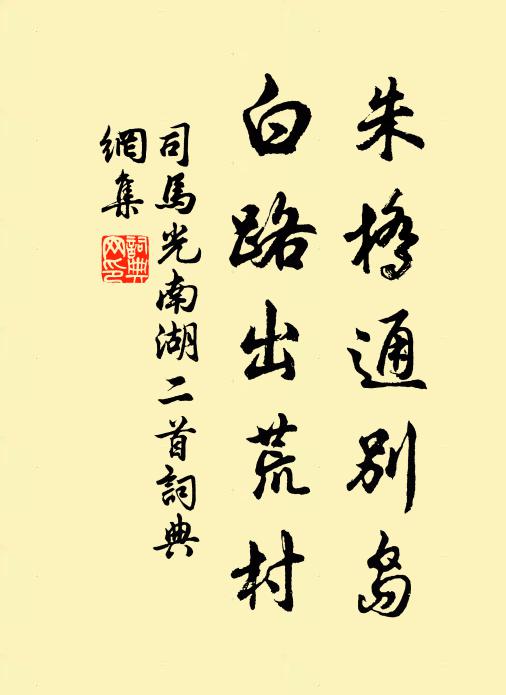 朱橋通別島
白路出荒村
司馬光南湖二首詞典
網集
詞典
网印